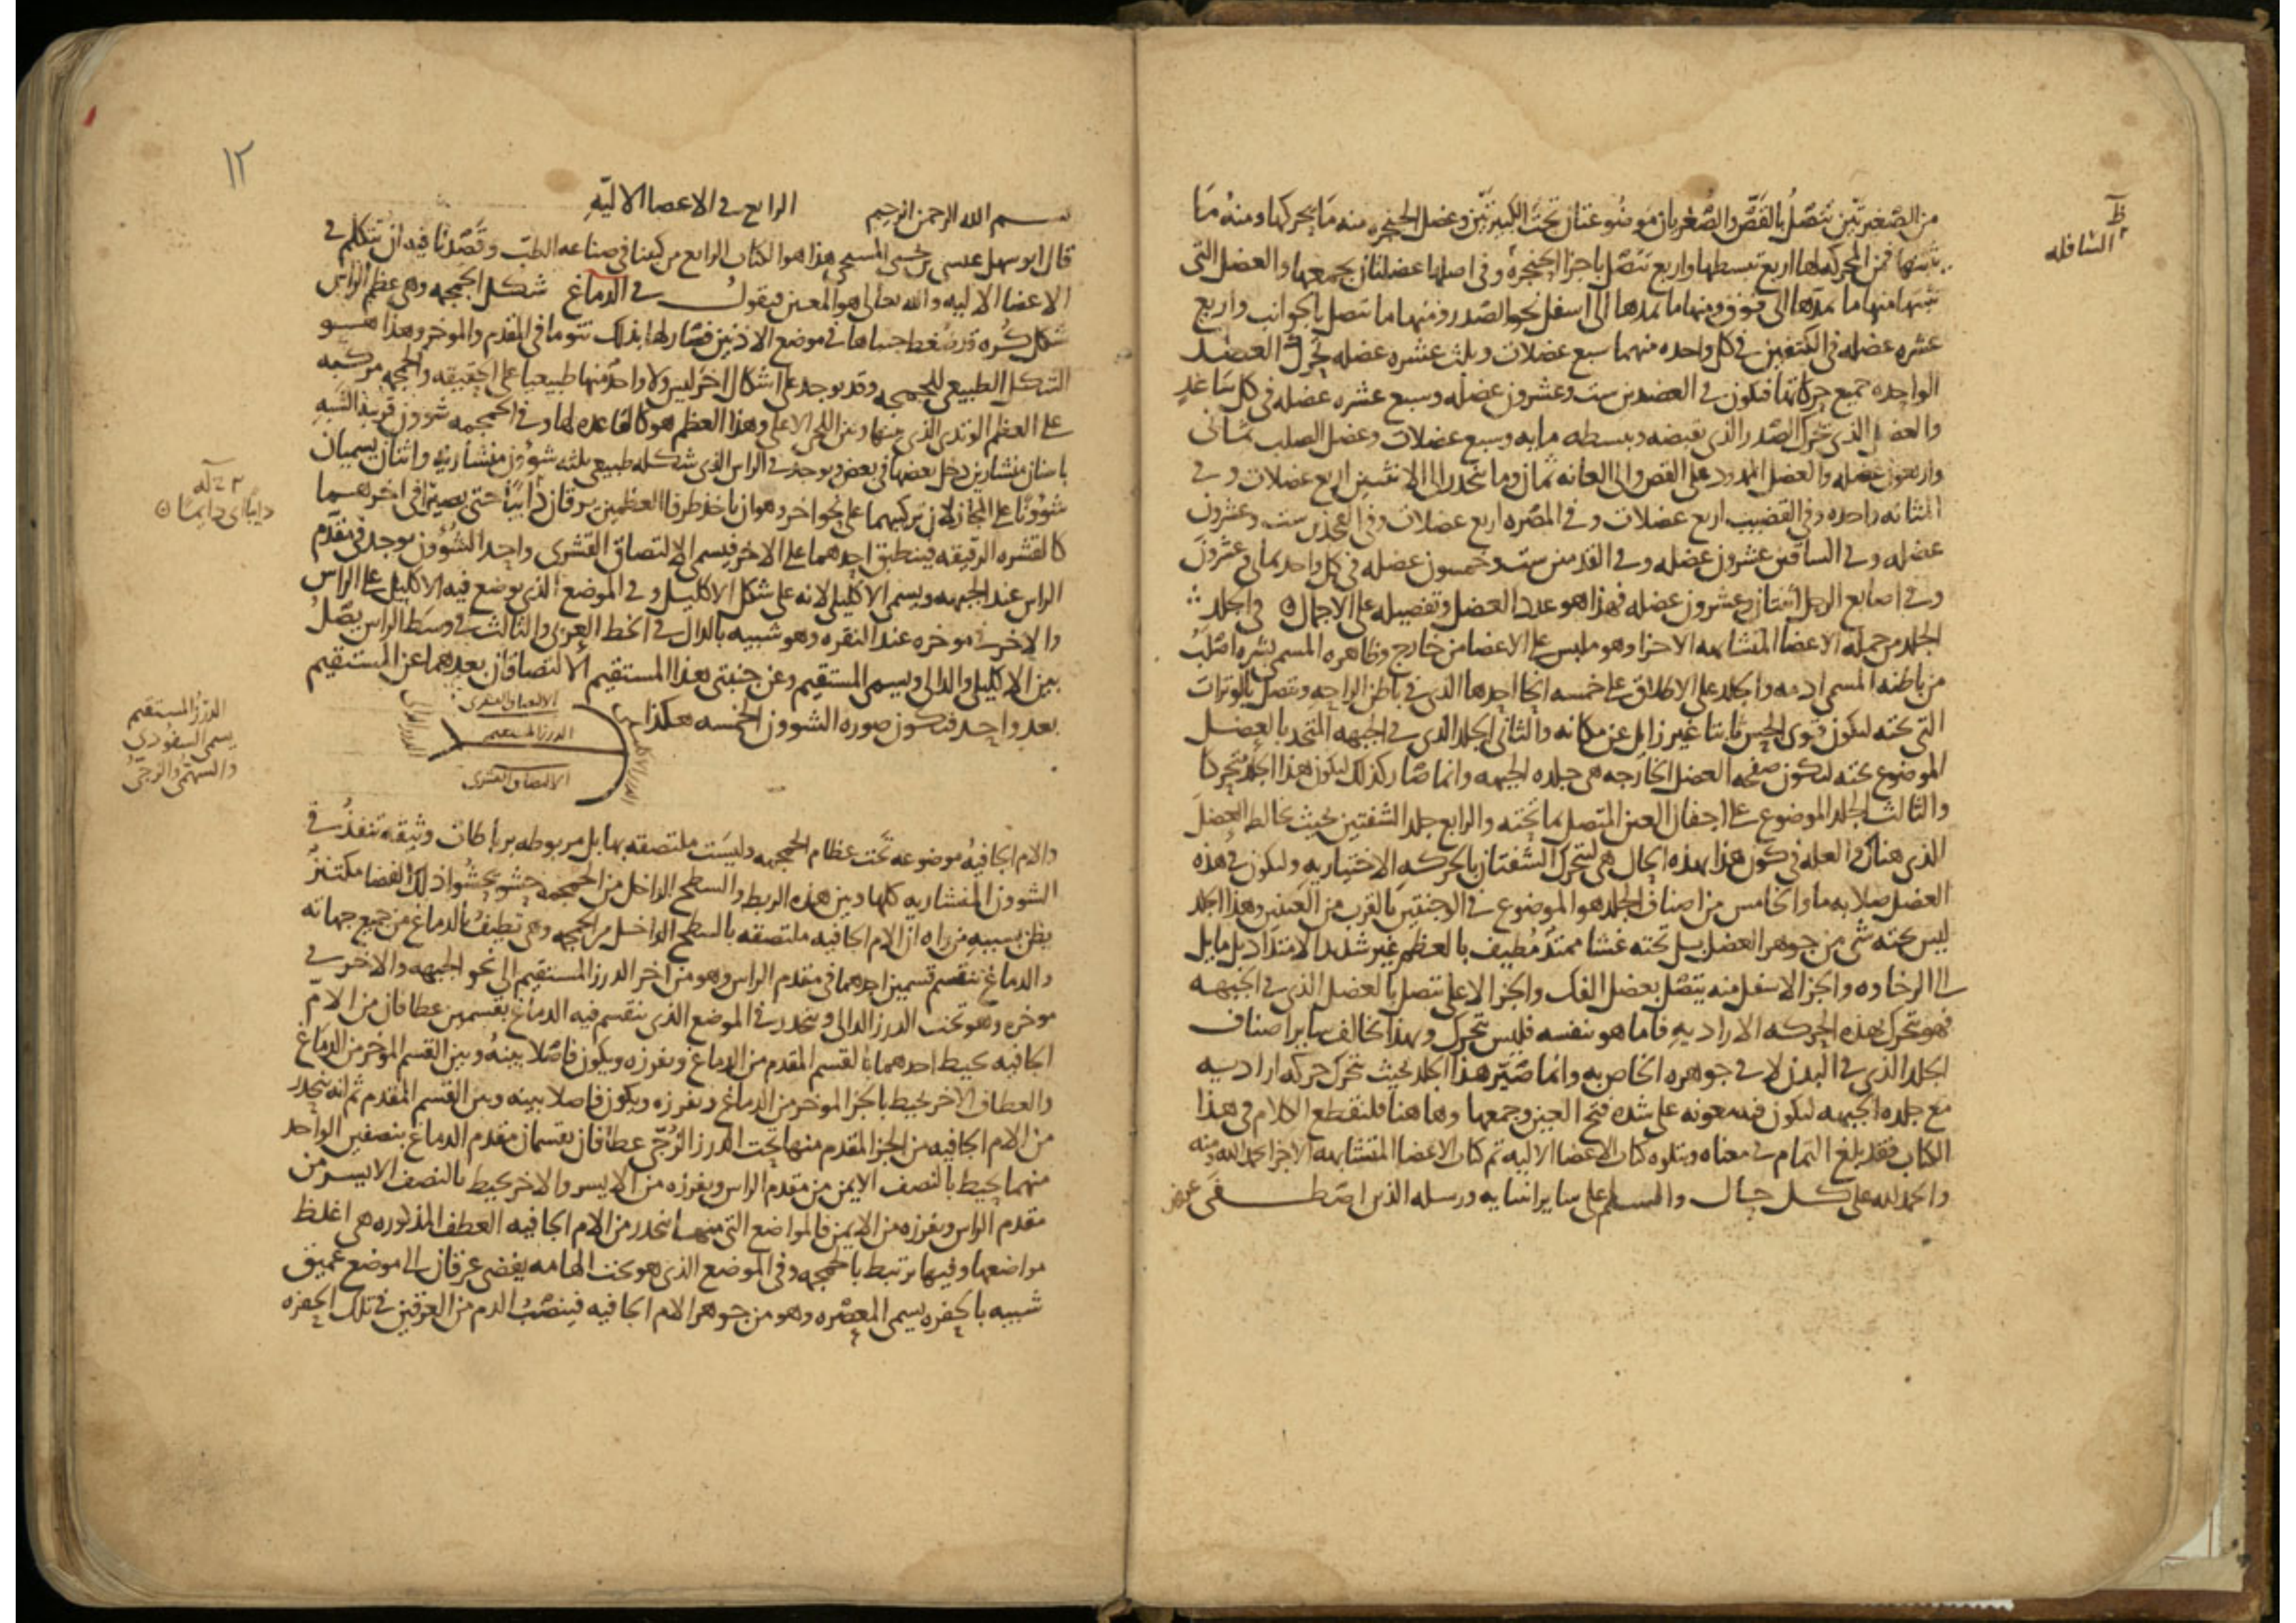 من الصغيرتين تتصل بالقص والصغريان موضوعتان تحت الكبيرتين وعضل الحنجره منه ما يحركها ومنه ما
يثبتها فمن المحركه لها اربع تبسطها واربع تتصل باجزا الحنجره وفي اصلها عضلتان يجمعها والعضل التي
تثبتها منها ما يمدها الى فوق ومنها ما يمدها الى اسفل نحو الصدر ومنها ما تتصل بالجوانب واربع
عشره عضله في الكتفين في كل واحده منهما سبع عضلات وثلث عشره عضله تحرك العضد
الواحده جميع حركاتها فتكون في العضدين ست وعشرون عضله وسبع عشره عضله في كل ساعد
والعضل الذي تحرك الصدر الذي يقبضه ويبسطه مايه وسبع عضلات وعضل الصلب ثماني
واربعون عضله والعضل الممدود على القص والى العانه ثمان وما ينحدر الى الانثيين اربع عضلات وفي
المثانه واحده وفي القضيب اربع عضلات وفي المقعده اربع عضلات وفي الفخذين ست وعشرون
عضله وفي الساقين عشرون عضله وفي القدمين ست وخمسون عضله في كل واحد ثماني وعشرون
وفي اصابع الرجل اثنتان وعشرون عضله فهذا هو عدد العضل وتفصيله على الاجمال في الجلد
الجلد من جمله الاعضا المتشابهه الاجزا وهو ملبس على الاعضا من خارج وظاهره المسمى بشره اصلب
من باطنه المسمى ادمه والجلد على الاطلاق على خمسه انحا احدها الذي في باطن الراحه ويتصل بالوترات
التي تحته ليكون قوي الحس ثابتا غير زايل عن مكانه والثاني الجلد الذي في الجبهه المتحد بالعضل
الموضوع تحته لتكون صفحه العضل الخارجه هي جلده الجبهه وانما صار كذلك ليكون هذا الجلد متحركا
والثالث الجلد الموضوع على اجفان العين المتصل بما تحته والرابع جلد الشفتين بحيث يخالط العضل
الذي هناك والعله في كون هذا بهذه الحال هي لتتحرك الشفتان بالحركه الاختياريه وليكون في هذه
العضل صلابه ما والخامس من اصناف الجلد هو الموضوع في الوجنتين بالقرب من العينين وهذا الجلد
ليس تحته شي من جوهر العضل بل تحته غشا ممتد مطيف بالعظم غير شديد الامتداد بل مايل
الى الرخاوه والجز الاسفل منه يتصل بعضل الفك والجز الاعلى تتصل بالعضل الذي في الجبهه
فهو تحرك بهذه الحركه الاراديه فاما هو نفسه فليس تتحرك وبهذا خالف ساير اصناف
الجلد الذي في البدن لا في جوهره الخاص به وانما صير هذا الجلد بحيث تحرك حركه اراديه
مع جلده الجبهه ليكون فيه معونه على شده فتح العين وجمعها وها هنا فلنقطع الكلام في هذا
الكتاب فقد بلغ التمام في معناه ويتلوه كتاب الاعضا الاليه تم كتاب الاعضا المتشابهه الاجزا بحمد الله ومنه
والحمد لله على كل حال والسلم على ساير انبيايه ورسله الذين اصطفى
السافله
١٢
الرابع في الاعضا الاليه
بسم الله الرحمن الرحيم
قال ابو سهل عيسى بن يحيى المسيحي هذا هو الكتاب الرابع من كتبنا في صناعه الطب وقصدنا فيه ان نتكلم في
الاعضا الاليه والله تعالى هو المعين فيقول في الدماغ شكل الجمجمه وهي عظم الراس
شكل كره قد ضغط جنباها في موضع الاذنين فصار لها بذلك نتو ما في المقدم والموخر وهذا هو
الشكل الطبيعي للجمجمه وقد يوجد على اشكال اخر ليس ولا واحد منها طبيعيا على الحقيقه والجمجمه مركبه
على العظم الوتدي الذي بينها وبين اللحي الاعلى وهذا العظم هو كالقاعده لها وفي الجمجمه شوون قريبه الشبه
باسنان منشارين دخل بعضها في بعض ويوجد في الراس الذي شكله طبيعي ثلثه شوون منشاريه واثنان يسميان
شوونا على المجاز لان تركيبهما على نحو اخر وهو ان ياخذ طرفا العظمين يرقان دايبا حتى يصيرا في اخرهما
كالقشره الرقيقه فينطبق احدهما على الاخر فيسمى الالتصاق القشري واحد الشوون يوجد في مقدم
الراس عند الجبهه ويسمى الاكليلي لانه على شكل الاكليل وفي الموضع الذي يوضع فيه الاكليل على الراس
والاخر في موخره عند النقره وهو شبيه بالدال في الخط العربي والثالث في وسط الراس يصل
بين الاكليلي والدالي ويسمى المستقيم وعن جنبتي هذا المستقيم الالتصاقان بعدهما عن المستقيم
بعد واحد فتكون صوره الشوون الخمسه هكذا
الالتصاق القشري
الدرز المستقيم
الالتصاق القشري
الدرز المستقيم
يسمى السفودي
والسهمي والزجي
والام الجافيه موضوعه تحت عظام الجمجمه وليست ملتصقه بها بل مربوطه برباطات وثيقه تنفذ في
الشوون المنشاريه كلها وبين هذه الربط والسطح الداخل من الجمجمه حشو يحشوا ذلك الفضا مكتنز
يظن بسببه من راه ان الام الجافيه ملتصقه بالسطح الداخل من الجمجمه وهي تطيف بالدماغ من جميع جهاته
والدماغ ينقسم قسمين احدهما في مقدم الراس وهو من اخر الدرز المستقيم الى نحو الجبهه والاخر في
موخره وهو تحت الدرز الدالي وينحدر في الموضع الذي ينقسم فيه الدماغ بقسمين عطافان من الام
الجافيه يحيط احدهما بالقسم المقدم من الدماغ ويفرزه ويكون فاصلا بينه وبين القسم الموخر من الدماغ
والعطاف الاخر يحيط بالجز الموخر من الدماغ ويفرزه ويكون فاصلا بينه وبين القسم المقدم ثم انه ينحدر
من الام الجافيه من الجز المقدم منها تحت الدرز الزجي عطافان يقسمان مقدم الدماغ بنصفين الواحد
منهما يحيط بالنصف الايمن من مقدم الراس ويفرزه من الايسر والاخر يحيط بالنصف الايسر من
مقدم الراس ويفرزه من الايمن فالمواضع التي منها ينحدر من الام الجافيه العطف المذكوره هي اغلظ
مواضعها وفيها يرتبط بالجمجمه وفي الموضع الذي هو تحت الهامه يفضي عرقان الى موضع عميق
شبيه بالحفره يسمى المعصره وهو من جوهر الام الجافيه فينصب الدم من العرقين في تلك الحفره